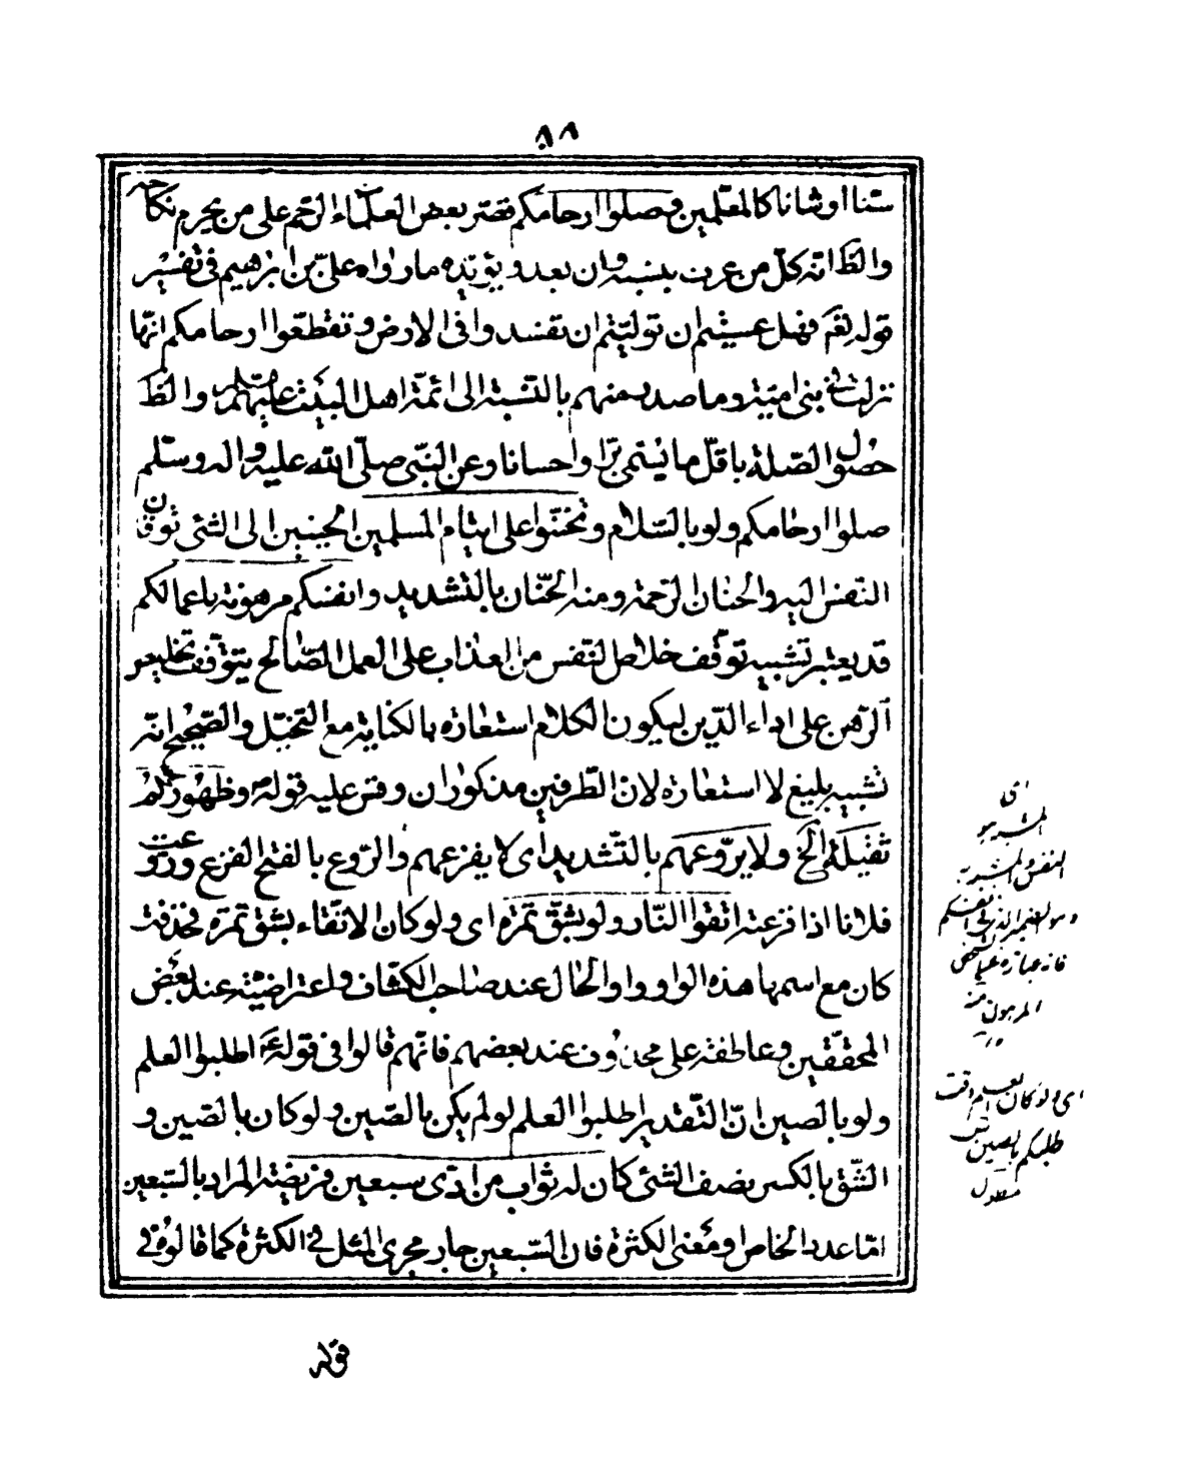 ٨٨
سنّا او شانا كالمعلّمين وصلوا ارحامكم قصّر بعض العلماء الرّحم على من يحرم نكاحه
والظّ انّه كلّ من عرف بنسبه وان بعد ويؤيّده مارواه علىّ بن ابرهيم فى تفسير
قوله تعم فهل عسيتم ان تولّيتم ان تفسدوا فى الارض وتقطّعوا ارحامكم انّها
نزلت فى بنى اميّة وما صدر منهم بالنّسبة الى ائمّة اهل البيت عليهم والظّ
حصول الصّلة باقلّ ما يسمّى برّا واحسانا وعن النّبىّ صلّى الله عليه واله وسلّم
صلوا ارحامكم ولو بالسّلام وتحنّنوا على ايتام المسلمين الحنين الى الشئ توقان
النّفس اليه والحنان الرّحمة ومنه الحنّان بالتشديد وانفسكم مرهونة باعمالكم
قد يعتبر تشبيه توقّف خلاص النفس من العذاب على العمل الصّالح بتوقّف تخليص
الرّهن على اداء الدّين ليكون الكلام استعارة بالكناية مع التخييل والصّحيح انّه
تشبيه بليغ لا استعارة لانّ الطّرفين مذكوران وقس عليه قوله ص وظهوركم
ثقيلة الخ ولا يروّعهم بالتّشديد اى لا يفزعهم والرّوع بالفتح الفزع وروّعت
فلانا اذا فزعته اتقوا النّار ولو بشقّ تمرة اى ولو كان الاتّقاء بشقّ تمرة فحذفت
كان مع اسمها هذه الواو واو الحال عند صاحب الكشّاف واعتراضيّة عند بعض
المحقّقين وعاطفة على محذوف عند بعضهم فانّهم قالوا فى قوله ع اطلبوا العلم
ولو بالصين انّ التّقدير اطلبوا العلم لو لم يكن بالصّين ولو كان بالصّين و
الشّقّ بالكسر نصف الشئ كان له ثواب من ادّى سبعين فريضة المراد بالسّبعين
امّا عدد الخاص او معنى الكثرة فان السّبعين جار مجرى المثل فى الكثرة كما قالوه فى
اى
المشبه هو
النفس والمشبه به
فانه عبارة عن الشخص
المرهون منه
اى ولو كان
طلبكم بالصين
قوله